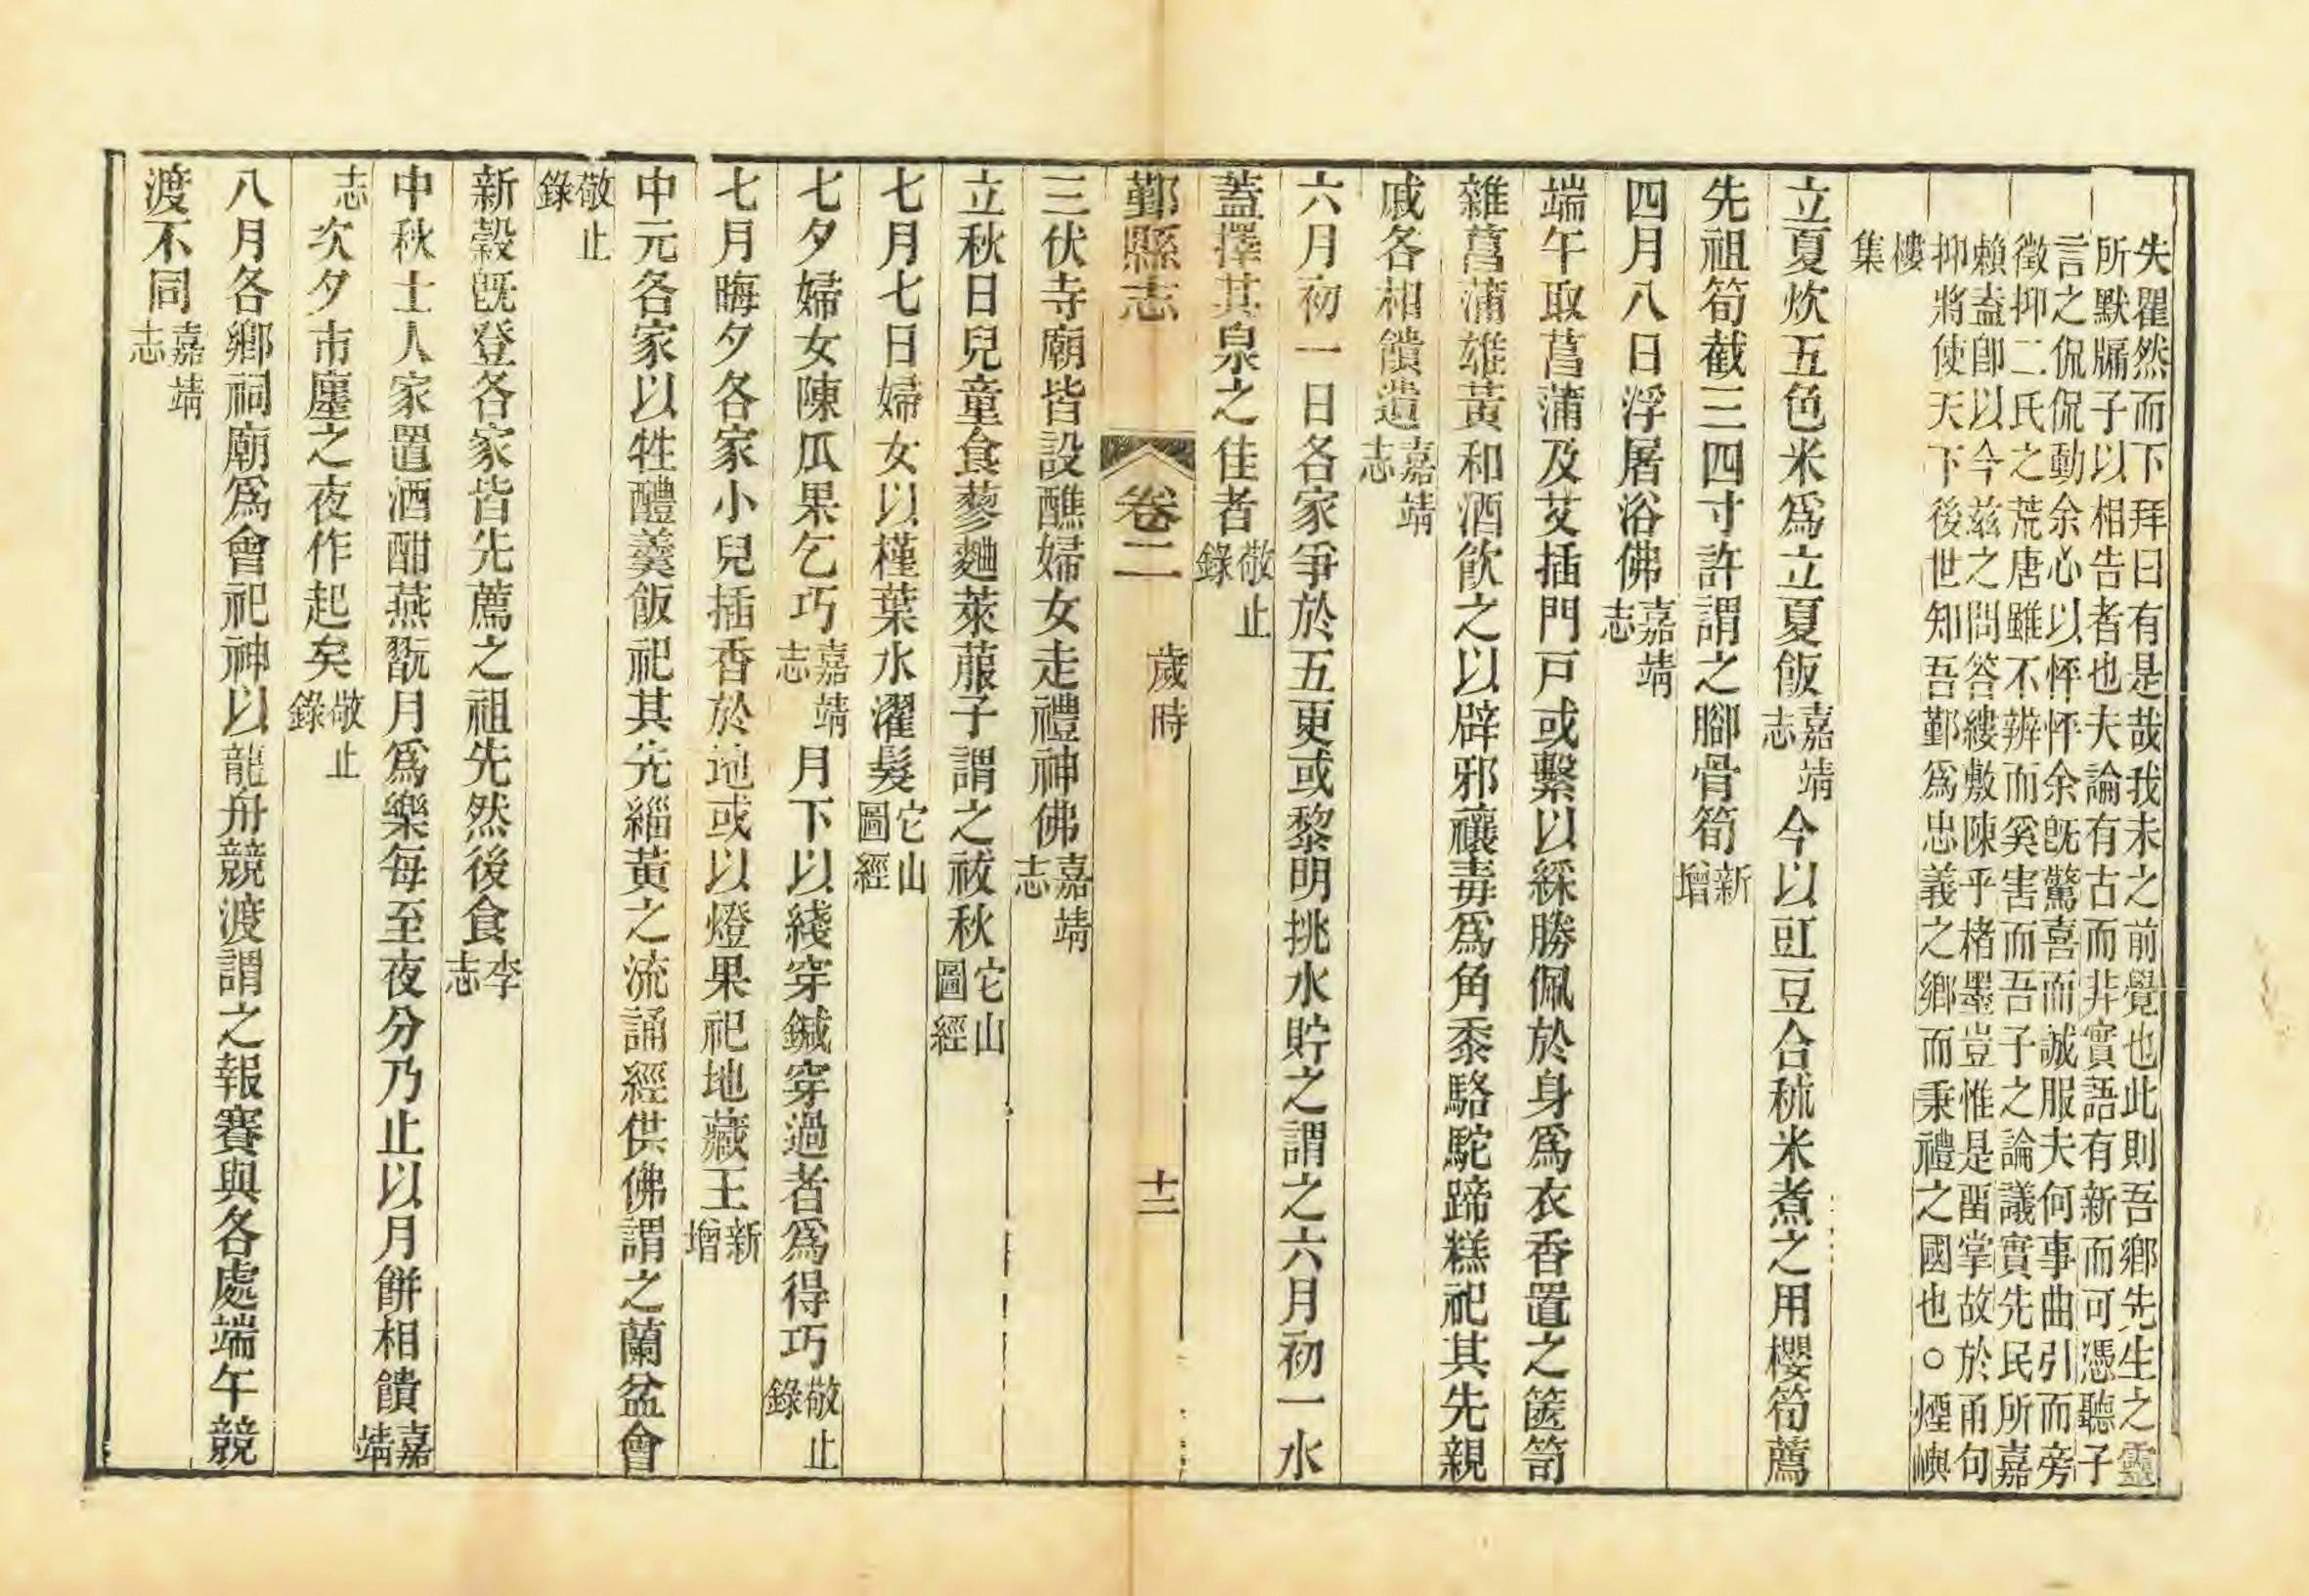 失瞿然而下拜曰有是哉我未之前覺也此則吾鄉先生之靈
所默牖子以相告者也夫論有古而非實語有新而可憑聽子
言之侃侃動余心以怦怦余旣驚喜而誠服夫何事曲引而旁
徵抑二氏之荒唐雖不辨而奚害而吾子之論議實先民所嘉
賴盍卽以今茲之問答縷敷陳乎楮墨豈惟是罶掌故於甬句
抑將使天下後世知吾鄞爲忠義之鄉而秉禮之國也○煙嶼
樓
集
立夏炊五色米爲立夏飯嘉靖志今以豇豆合秫米煮之用櫻筍薦
先祖筍截三四寸許謂之腳骨筍新增
四月八日浮屠浴佛嘉靖志
端午取菖蒲及艾插門戶或繫以綵勝佩於身爲衣香置之篋笥
雜菖蒲雄黃和酒飮之以辟邪禳毒爲角黍駱駝蹄糕祀其先親
戚各相饋遺嘉靖志
六月初一日各家爭於五更或黎明挑水貯之謂之六月初一水
蓋擇其泉之佳者敬止錄
鄞縣志 卷二 歲時 十二
三伏寺廟皆設醮婦女走禮神佛嘉靖志
立秋日兒童食蓼麯萊菔子謂之祓秋它山圖經
七月七日婦女以槿葉水濯髮它山圖經
七夕婦女陳瓜果乞巧嘉靖志月下以綫穿鍼穿過者爲得巧敬止錄
七月晦夕各家小兒插香於地或以燈果祀地藏王新增
中元各家以牲醴羹飯祀其先緇黃之流誦經供佛謂之蘭盆會
敬止錄
新穀旣登各家皆先薦之祖先然後食李志
中秋士人家置酒酣燕翫月爲樂每至夜分乃止以月餅相饋嘉靖
志次夕市廛之夜作起矣敬止錄
八月各鄉祠廟爲會祀神以龍舟競渡謂之報賽與各處端午競
渡不同嘉靖志